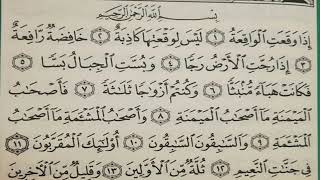 بِسْمِ اللَّهِ الرَّحْمَٰنِ الرَّحِيمِ
إِذَا وَقَعَتِ الْوَاقِعَةُ ١ لَيْسَ لِوَقْعَتِهَا كَاذِبَةٌ ٢ خَافِضَةٌ رَافِعَةٌ
٣ إِذَا رُجَّتِ الْأَرْضُ رَجًّا ٤ وَبُسَّتِ الْجِبَالُ بَسًّا ٥
فَكَانَتْ هَبَاءً مُنْبَثًّا ٦ وَكُنْتُمْ أَزْوَاجًا ثَلَاثَةً ٧ فَأَصْحَابُ
الْمَيْمَنَةِ مَا أَصْحَابُ الْمَيْمَنَةِ ٨ وَأَصْحَابُ الْمَشْأَمَةِ مَا أَصْحَابُ
الْمَشْأَمَةِ ٩ وَالسَّابِقُونَ السَّابِقُونَ ١٠ أُولَٰئِكَ الْمُقَرَّبُونَ ١١
فِي جَنَّاتِ النَّعِيمِ ١٢ ثُلَّةٌ مِنَ الْأَوَّلِينَ ١٣ وَقَلِيلٌ مِنَ الْآخِرِينَ